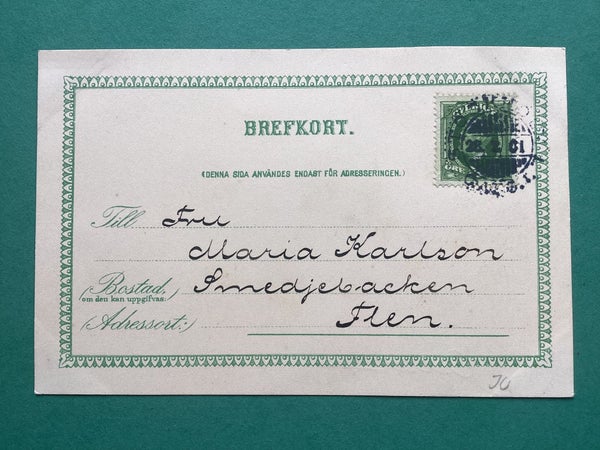 BREFKORT.
(DENNA SIDA ANVÄNDES ENDAST FÖR ADRESSERINGEN.)
Till Fru
Maria Karlson
(Bostad,) Smedjebacken
om den kan uppgifvas
(Adressort:) Flen.
JO